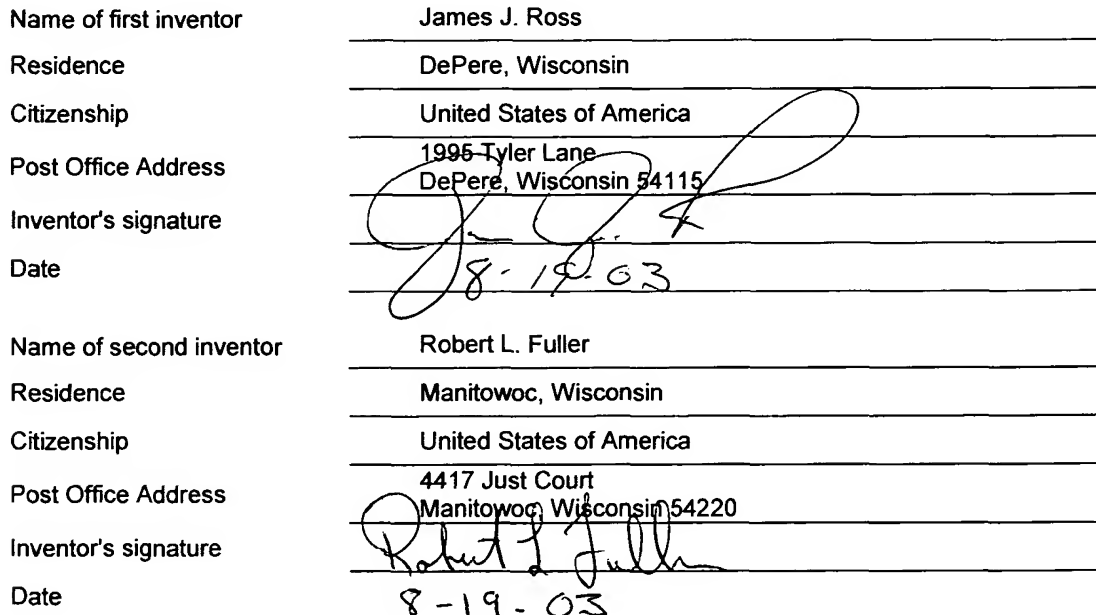 Name of first inventor James J. Ross
Residence DePere, Wisconsin
Citizenship United States of America
Post Office Address 1995 Tyler Lane
DePere, Wisconsin 54115
Inventor's signature
Date 8-19-03
Name of second inventor Robert L. Fuller
Residence Manitowoc, Wisconsin
Citizenship United States of America
Post Office Address 4417 Just Court
Manitowoc, Wisconsin 54220
Inventor's signature Robert L Fuller
Date 8-19-03